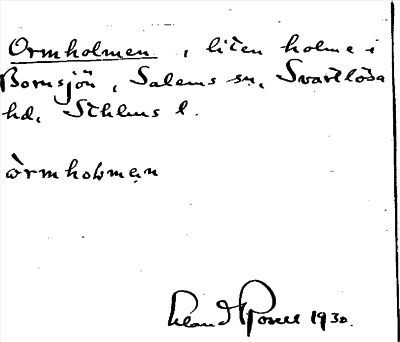 Ormholmen, liten holme i
Bornsjön, Salems sn, Svartlösa
hd, Sthlms l.
òrmholmən
1930.